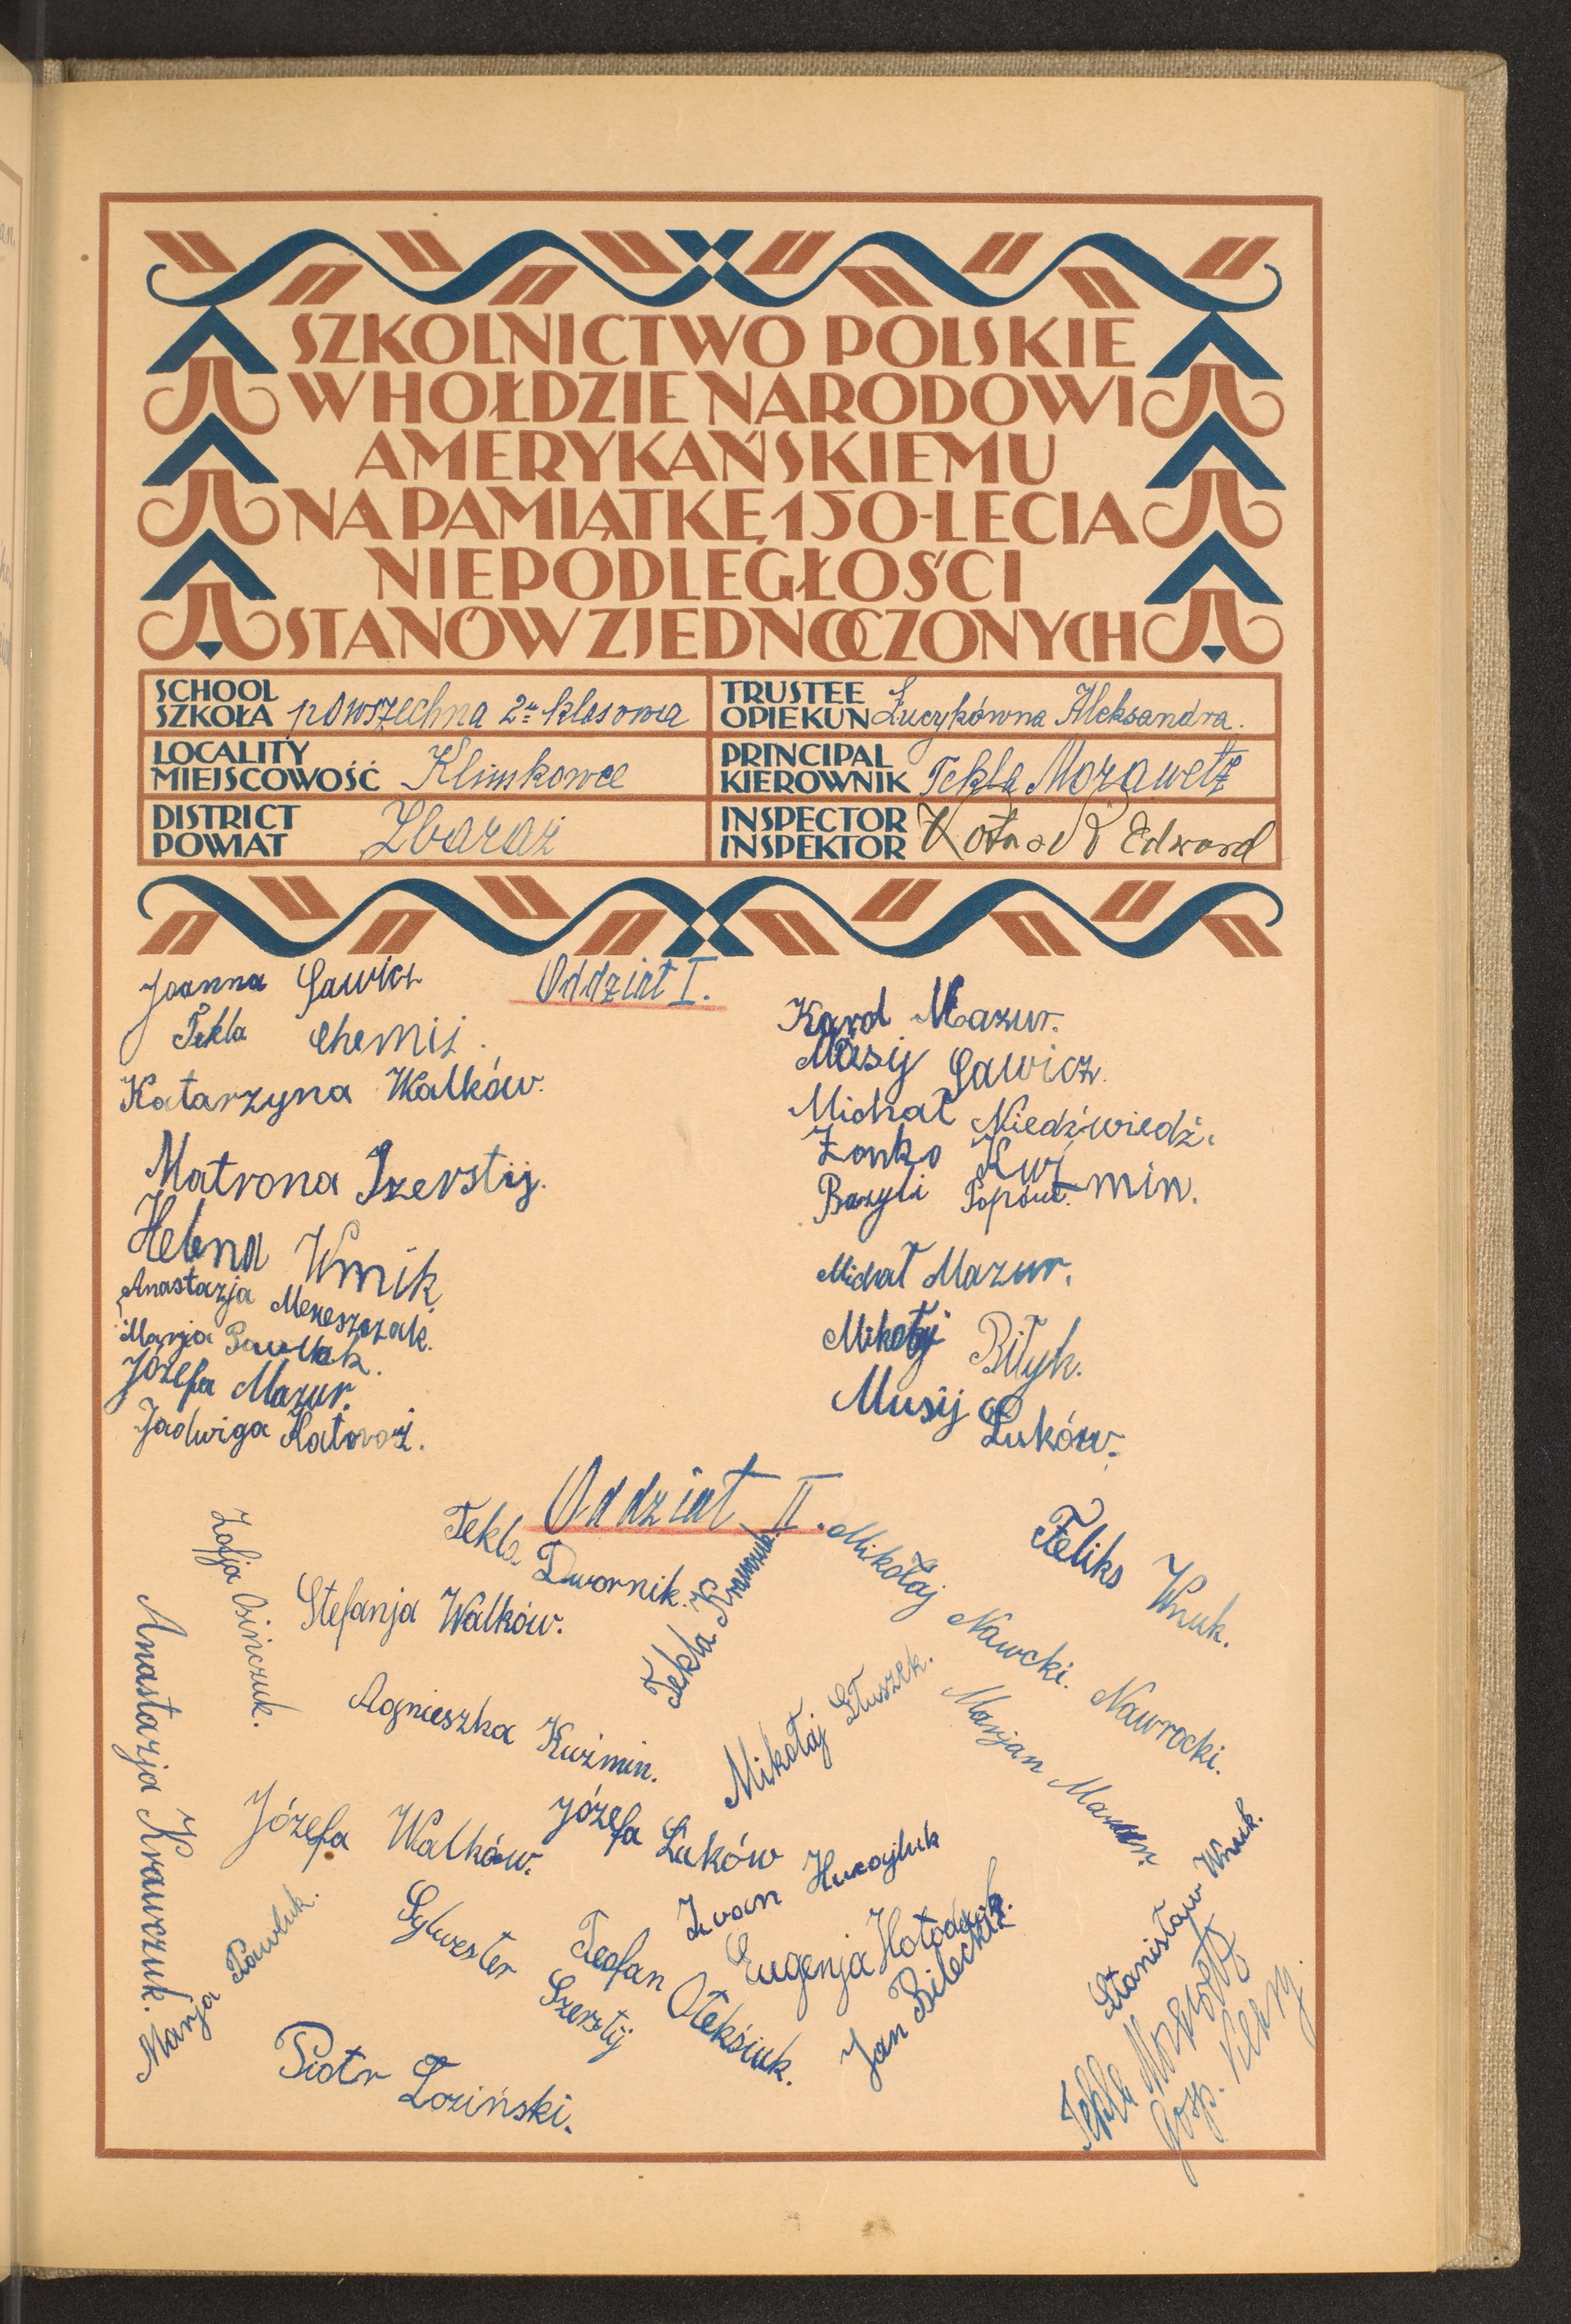 SZKOLNICTWO POLSKIE
W HOŁDZIE NARODOWI
AMERYKAŃSKIEMU
NA PAMIĄTKĘ 150-LECIA
NIEPODLEGŁOŚCI
STANÓW ZJEDNOCZONYCH
SCHOOL
SZKOŁA powszechna 2-klasowa
TRUSTEE
OPIEKUN Łucykówna Aleksandra.
LOCALITY
MIEJSCOWOŚĆ Klimkowce
PRINCIPAL
KIEROWNIK Tekla Morawetz
DISTRICT
POWIAT Zbaraż
INSPECTOR
INSPEKTOR Edward
Oddział I.
Joanna Sawicz
Tekla Chemij.
Katarzyna Walków.
Matrona Szerstij.
Helena Wnuk.
Anastazja Mereszczak.
Marja Pawluk.
Józefa Mazur.
Jadwiga
Karol Mazur.
Mosij Sawicz.
Michał Niedźwiedź.
Zonko Kuźmin.
Bazyli
Michał Mazur.
Mikołaj Biłyk.
Musij Łuków.
Oddział II.
Tekla Dwornik.
Zofja Osińczuk.
Stefanja Walków.
Tekla Krawczuk.
Mikołaj Nawcki. Nawrocki.
Feliks Wnuk.
Anastazja Krawczuk.
Agnieszka Kuźmin.
Mikołaj Głuszek.
Marjan Mazur.
Józefa Walków.
Józefa Łuków
Iwan
Stanisław Wnuk.
Marja Pawluk.
Sylwester Szerstij
Teofan Ołeksiuk.
Eugenja
Jan Bilecki
Piotr Łoziński.
Tekla Morawetz